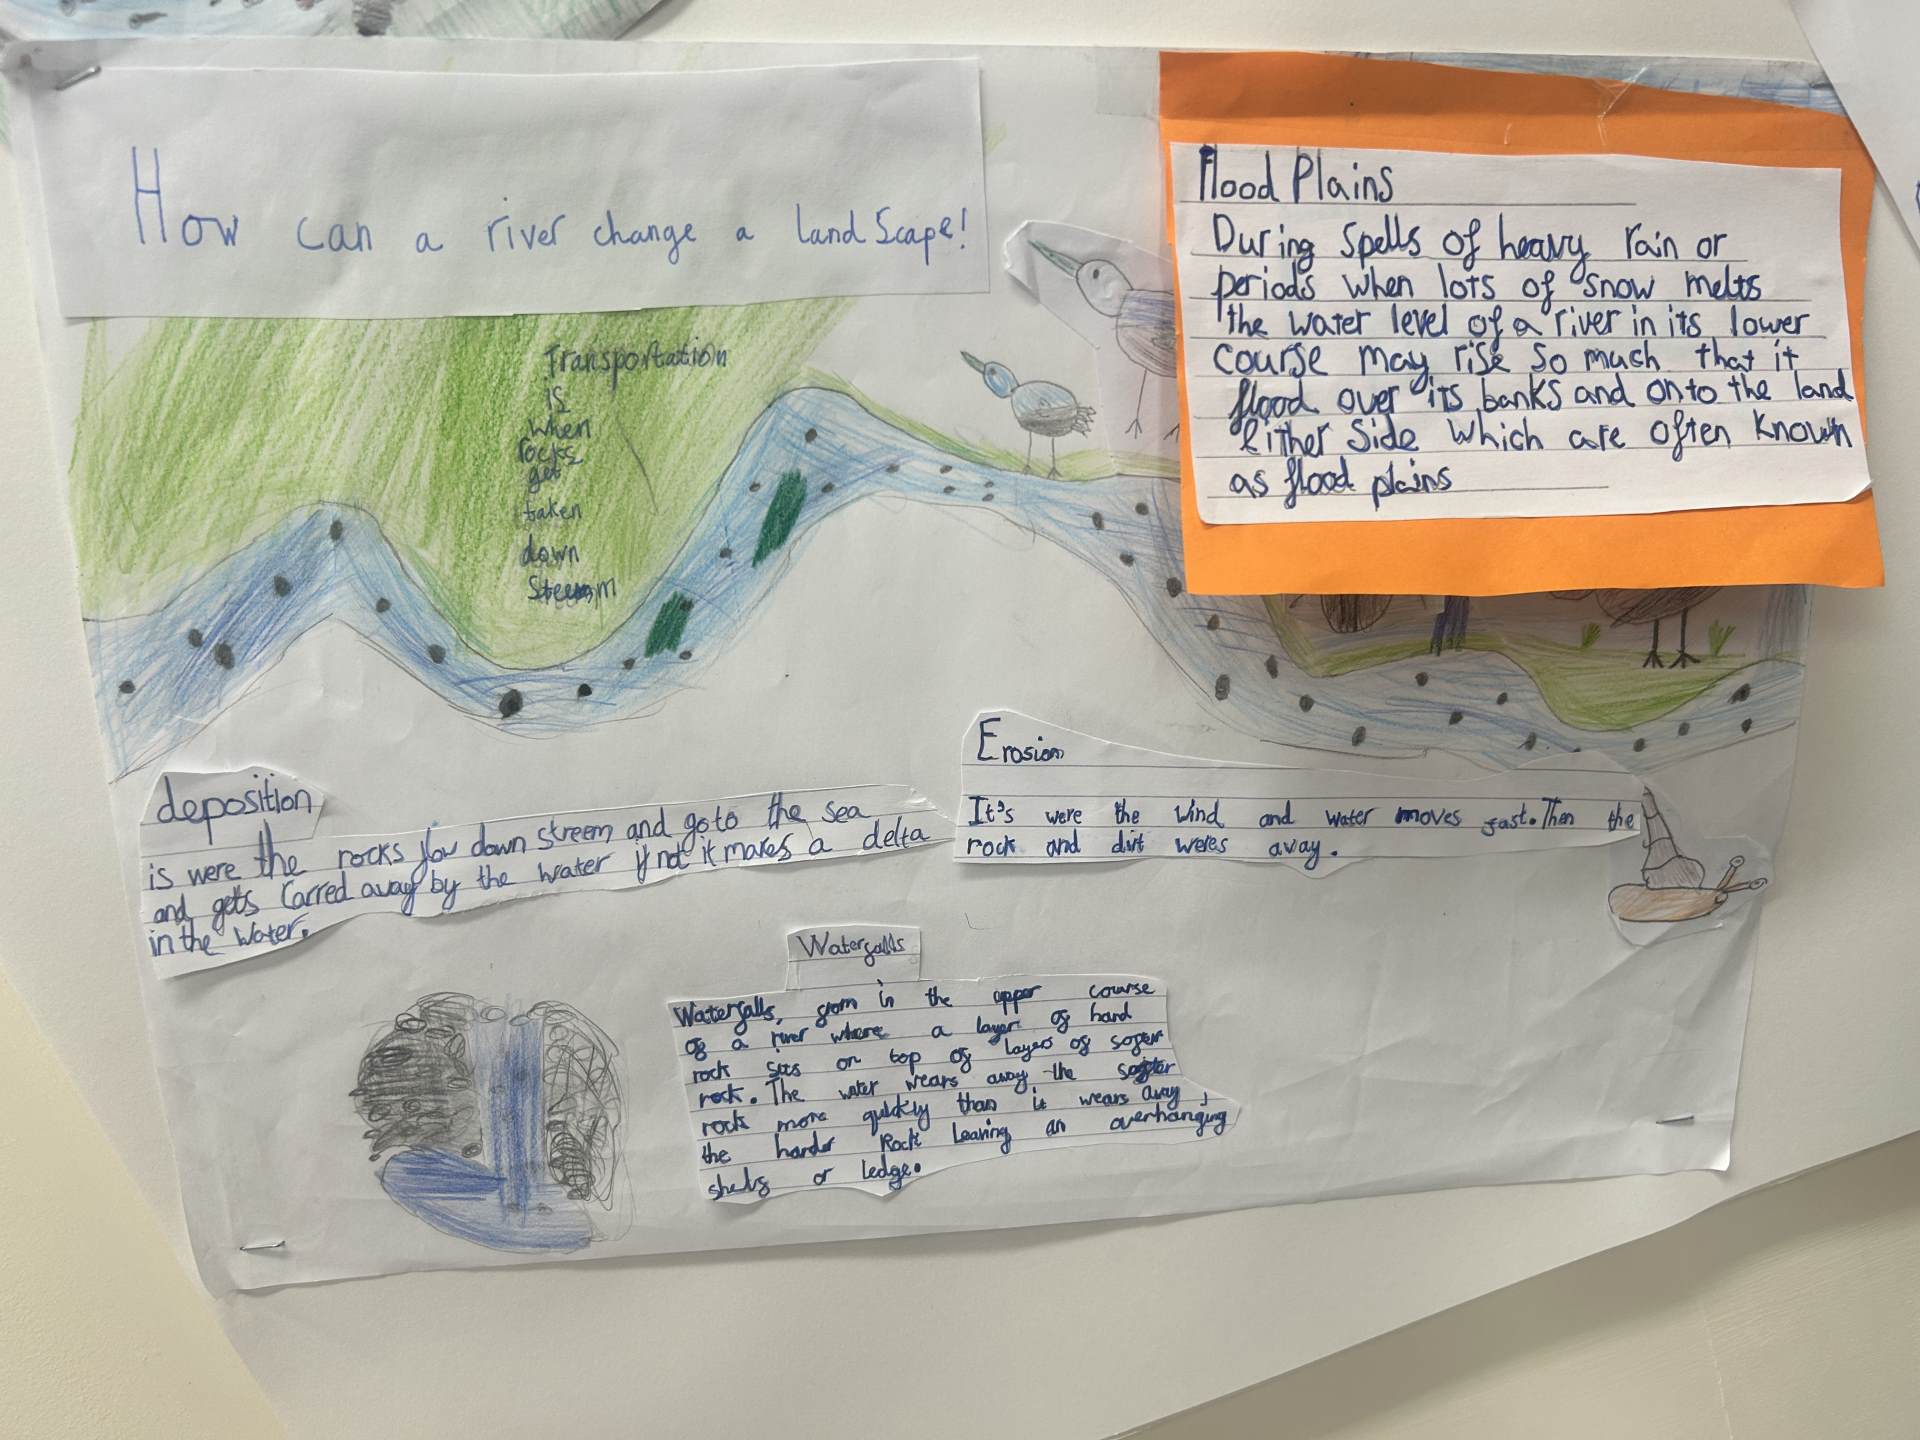 How can a river change a landScape!
Flood Plains
During spells of heavy rain or
periods when lots of snow melts
the water level of a river in its lower
course may rise so much that it
flood over its banks and onto the land
Either side which are often known
as flood plains
Transportation
is
when
rocks
get
taken
down
Streem
Erosion
It's were the wind and water moves fast. Then the
rock and dirt weres away.
deposition
is were the rocks flow down streem and goto the sea
and gets Carred away by the water if not it makes a delta
in the water.
Waterfalls
Waterfalls, from in the upper course
of a river where a layer of hard
rock sits on top of layers of softer
rock. The water wears away the softer
rock more quickly than it wears away
the harder Rock leaving an overhanging
shelf or ledge.